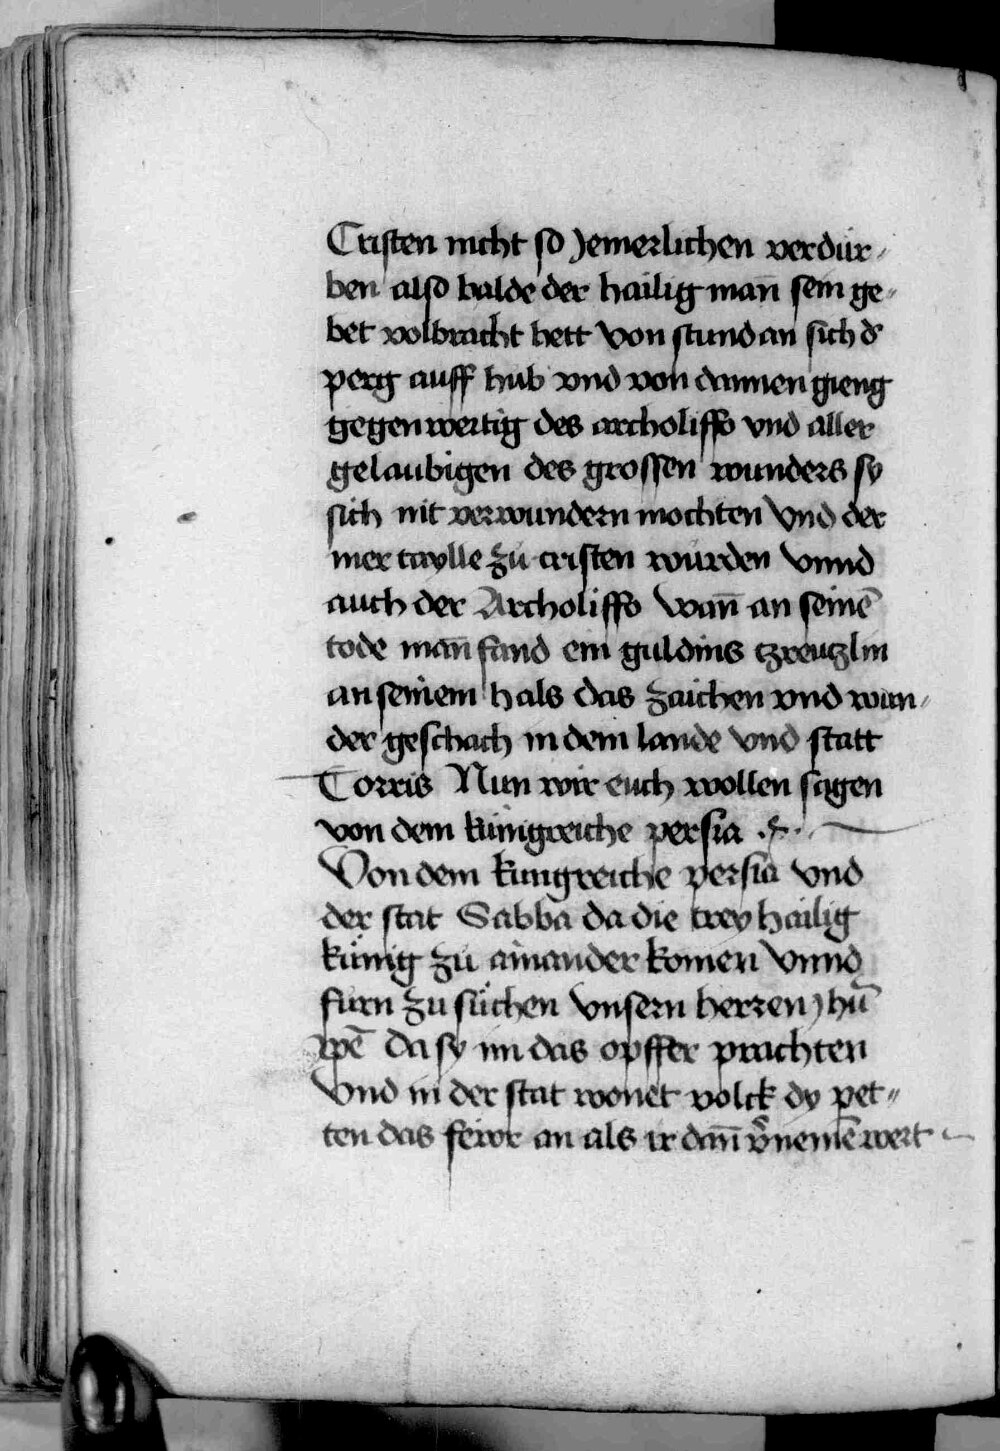 Cristen nicht so Jemerlichen verdur-
ben also balde der hailig man̄ sein ge-
bet volbracht hett Von stund an sich d̕
perg auff hub vnd von dannen gieng
gegenwertig des archoliffo vnd aller
gelaubigen des grossen wunders sy
sich nit verwundern mochten Vnd der
mer taylle zu cristen wurden Vnnd
auch der Archoliffo Wan̄ an seinē
tode man̄ fand ein guldins tzreutzlin
an seinem hals das zaichen vnd wun-
der geschach in dem lande Vnd statt
Torris Nun wir euch wollen sagen
von dem künigreiche persia
Von dem kungreiche persia Vnd
der stat Sabba da die trey hailig
künig zu ainander komen Vnnd
furn zu sůchen Vnsern herren Jhū
xp̄ē Da sy im das opffer prachten
Vnd in der stat wonet volck dy pet-
ten das fewr an als ir dan̄ v̕nemē wert